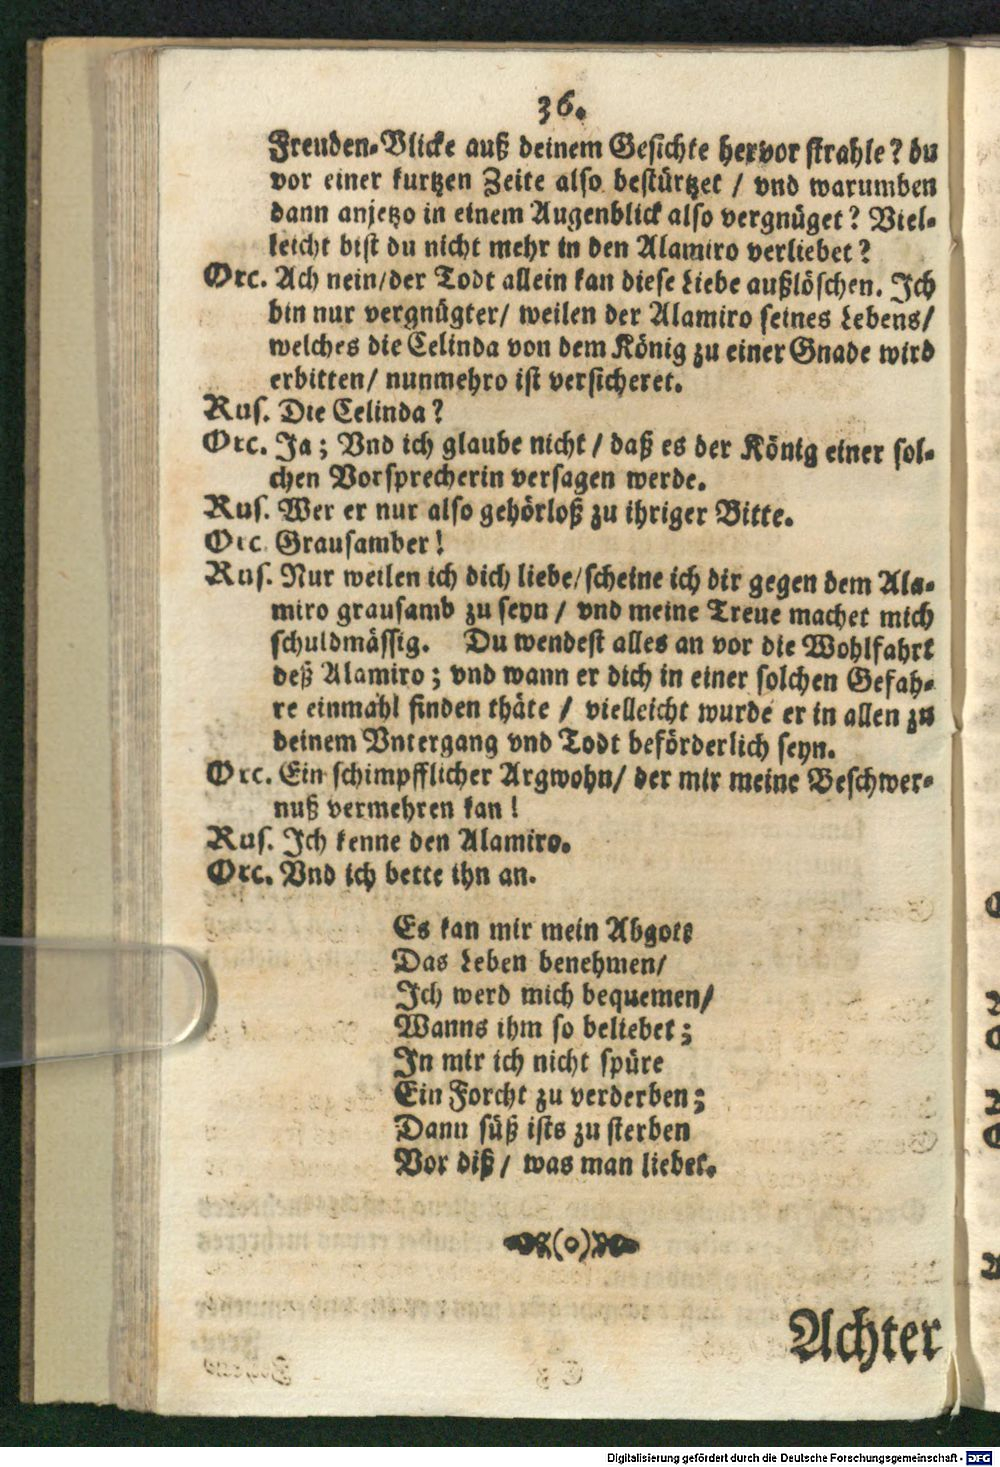 36.
Freuden-Blicke auß deinem Gesichte hervor strahle? du
vor einer kurtzen Zeite also bestürtzet / vnd warumben
dann anjetzo in einem Augenblick also vergnüget? Viel-
leicht bist du nicht mehr in den Alamiro verliebet?
Orc. Ach nein/der Todt allein kan diese Liebe außlöschen. Ich
bin nur vergnügter/ weilen der Alamiro seines Lebens/
welches die Celinda von dem König zu einer Gnade wird
erbitten/ nunmehro ist versicheret.
Rus. Die Celinda?
Orc. Ja; Vnd ich glaube nicht / daß es der König einer sol-
chen Vorsprecherin versagen werde.
Rus. Wer er nur also gehörloß zu ihriger Bitte.
Orc. Grausamber!
Rus. Nur weilen ich dich liebe/scheine ich dir gegen dem Ala-
miro grausamb zu seyn / vnd meine Treue machet mich
schuldmässig. Du wendest alles an vor die Wohlfahrt
deß Alamiro; vnd wann er dich in einer solchen Gefah-
re einmahl finden thäte / vielleicht wurde er in allen zu
deinem Vntergang vnd Todt beförderlich seyn.
Orc. Ein schimpfflicher Argwohn/ der mir meine Beschwer-
nuß vermehren kan!
Rus. Ich kenne den Alamiro.
Orc. Vnd ich bette ihn an.
Es kan mir mein Abgott
Das Leben benehmen/
Ich werd mich bequemen/
Wanns ihm so beliebet;
In mir ich nicht spüre
Ein Forcht zu verderben;
Dann süß ists zu sterben
Vor diß / was man liebet.
Achter
Digitalisierung gefördert durch die Deutsche Forschungsgemeinschaft - DFG